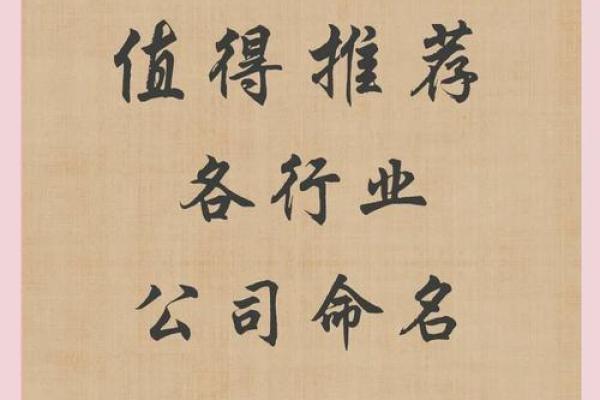 值得推荐
各行业
公司命名